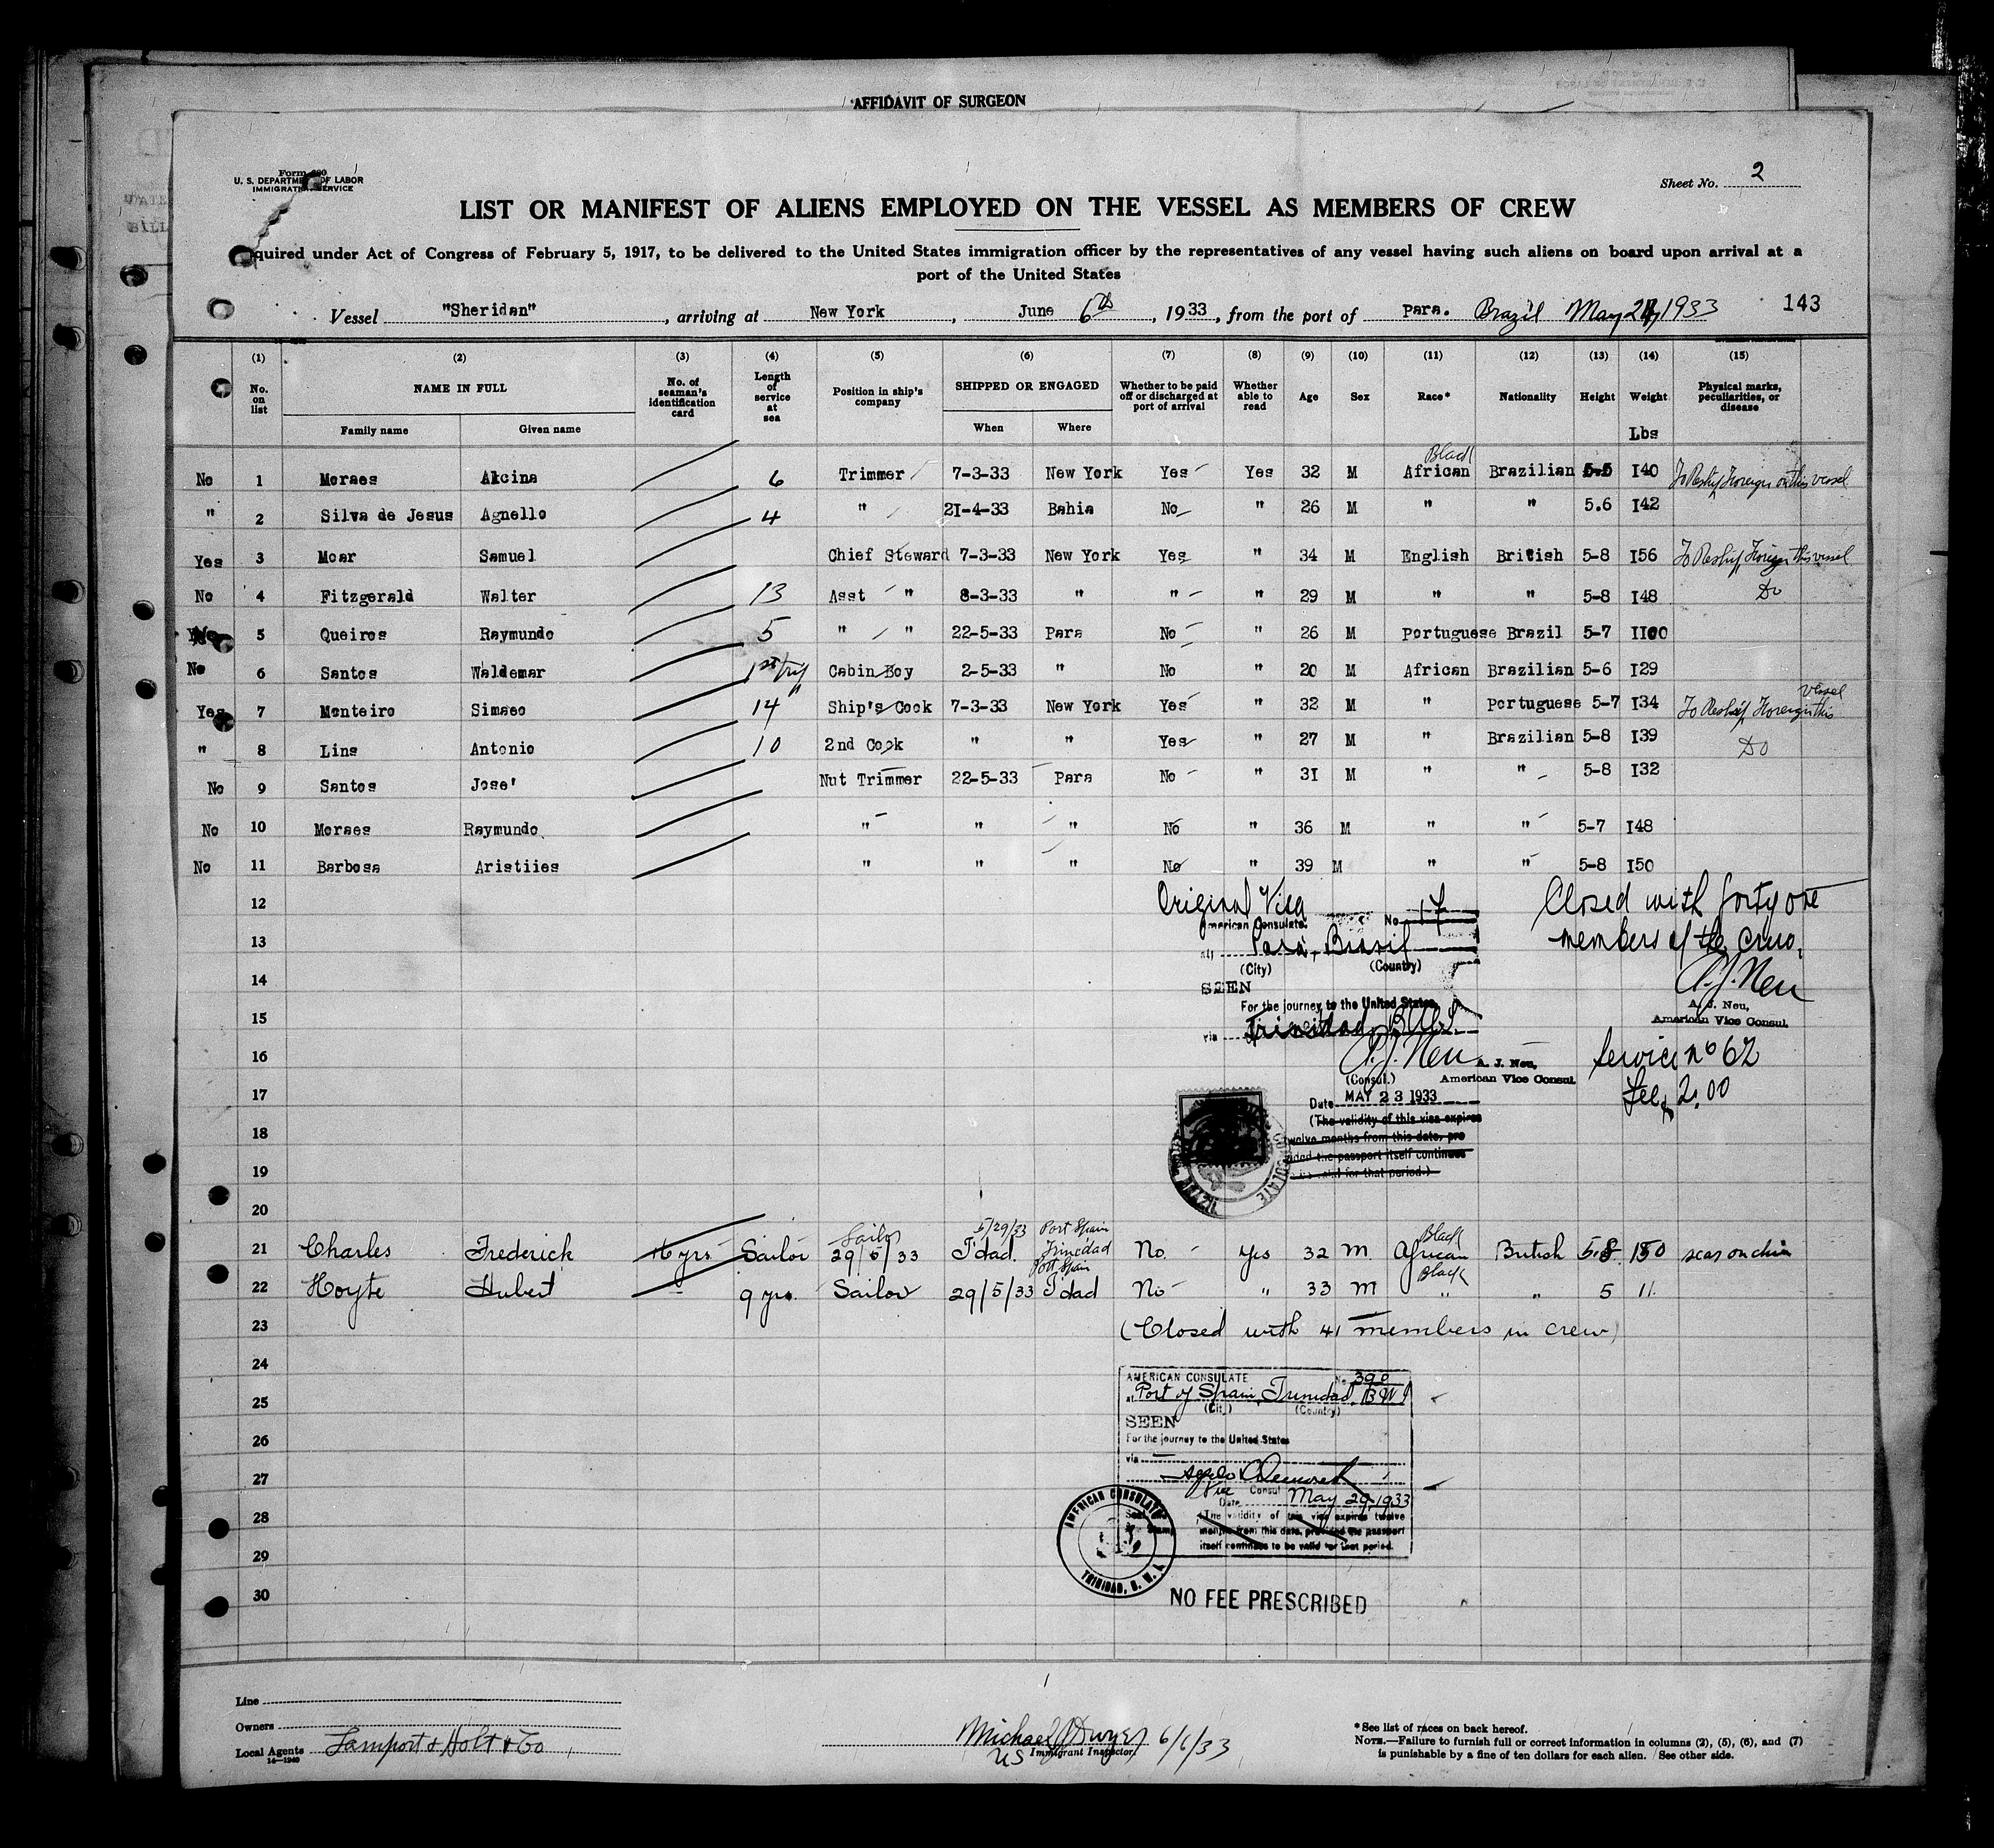 AFFIDAVIT OF SURGEON
U. S. DEPARTMENT OF LABOR
IMMIGRATION SERVICE
Sheet No. 2
LIST OR MANIFEST OF ALIENS EMPLOYED ON THE VESSEL AS MEMBERS OF CREW
quired under Act of Congress of February 5, 1917, to be delivered to the United States immigration officer by the representatives of any vessel having such aliens on board upon arrival at a
port of the United States
Vessel "Sheridan", arriving at New York, June 6th, 1933, from the port of Para. Brazil May 24, 1933 143
(1) (2) (3) (4) (5) (6) (7) (8) (9) (10) (11) (12) (13) (14) (15)
No. on list NAME IN FULL No. of seaman's identification card Length of service at sea Position in ship's company SHIPPED OR ENGAGED Whether to be paid off or discharged at port of arrival Whether able to read Age Sex Race* Nationality Height Weight Physical marks, peculiarities, or disease
Family name Given name When Where Lbs
No 1 Moraes Alcina 6 Trimmer 7-3-33 New York Yes Yes 32 M Black African Brazilian 5-5 I40 To Reship Foreign on this vessel
" 2 Silva de Jesus Agnello 4 " 2I-4-33 Bahia No " 26 M " " 5.6 I42
Yes 3 Moar Samuel Chief Steward 7-3-33 New York Yes " 34 M English British 5-8 I56 To Reship Foreign this vessel
No 4 Fitzgerald Walter 13 Asst " 8-3-33 " " " 29 M " " 5-8 I48 Do
5 Queiros Raymundo 5 " " 22-5-33 Para No " 26 M Portuguese Brazil 5-7
No 6 Santos Waldemar 1st trip Cabin Boy 2-5-33 " No " 20 M African Brazilian 5-6 I29
Yes 7 Monteiro Simaeo 14 " Ship's Cook 7-3-33 New York Yes " 32 M " Portuguese 5-7 I34 To Reship Foreign this vessel
" 8 Lins Antonio 10 2nd Cook " " Yes " 27 M " Brazilian 5-8 I39 Do
No 9 Santos Jose' Nut Trimmer 22-5-33 Para No " 3I M " " 5-8 I32
No 10 Moraes Raymundo. " " " No " 36 M " " 5-7 I48
No 11 Barbosa Aristiies " " " No " 39 M " " 5-8 I50
12 Original Visa Closed with forty one
American Consulate No. 17
13 at Para, Brazil members of the crew.
(City) (Country)
14 SEEN A. J. Neu
A. J. Neu,
For the journey to the United States
15 via Trinidad, B.W.I. American Vice Consul.
16 A. J. Neu A. J. Neu, Service no 62
(Consul.) American Vice Consul.
17 Date MAY 23 1933 Fee $ 2.00
(The validity of this visa expires
18 twelve months from this date, pro
vided the passport itself continues
19 valid for that period.)
20
21 Charles Frederick 16 yrs Sailor Sailor 29/5/33 5/29/33 T'dad. Port Spain Trinidad No. Yes 32 M. Black African British 5.8 150 scar on chin
22 Hoyte Hubert 9 yrs. Sailor 29/5/33 Port Spain T'dad No " 33 M Black " " 5 11.
23 (Closed with 41 members in crew)
24
AMERICAN CONSULATE No. 390
25 at Port of Spain, Trinidad, B W I
(City) (Country)
SEEN
26 For the journey to the United States
via
27
Vice Consul
Date May 29, 1933
28 (The validity of this visa expires twelve
months from this date, provided the passport
29 itself continues to be valid for that period.
AMERICAN CONSULATE
TRINIDAD, B. W. I.
30 NO FEE PRESCRIBED
Line
Owners
Local Agents Lamport & Holt & Co
14—1240
Michael J Dwyer 6/6/33
US Immigrant Inspector.
*See list of races on back hereof.
NOTE.—Failure to furnish full or correct information in columns (2), (5), (6), and (7)
is punishable by a fine of ten dollars for each alien. See other side.